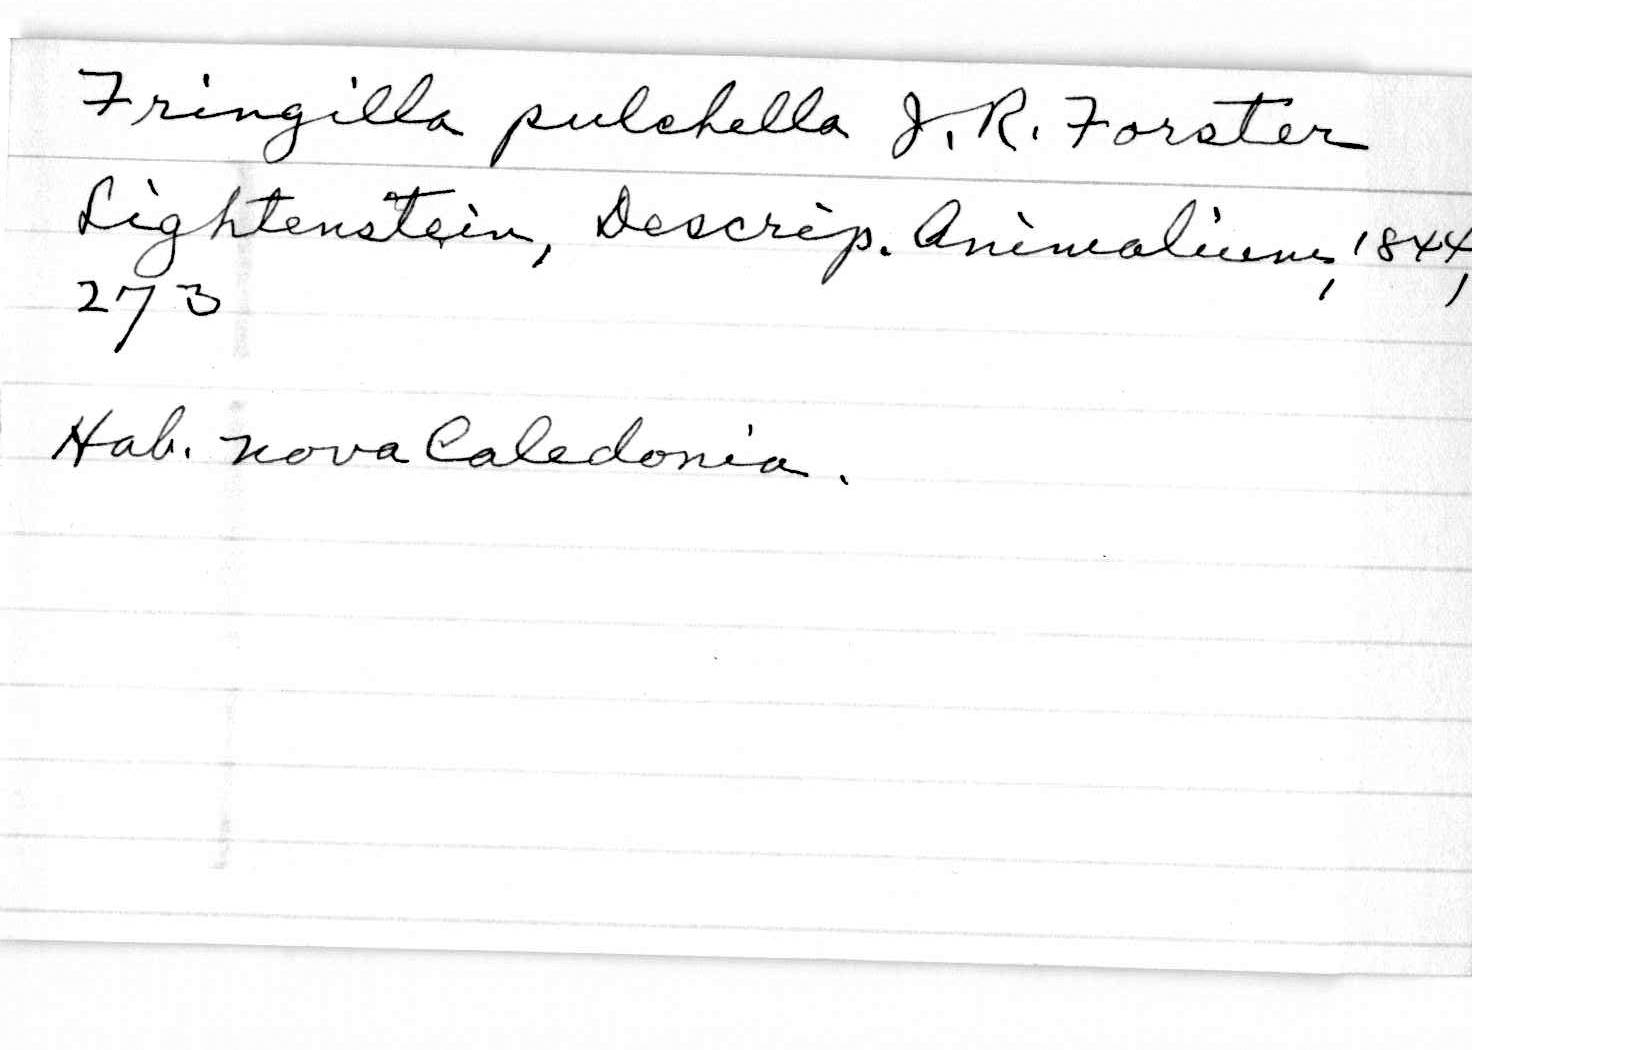 Fringilla pulchella J. R. Forster
Lightenstein, Descrip. Animalium, 1844,
273
Hab. nova Caledonia.